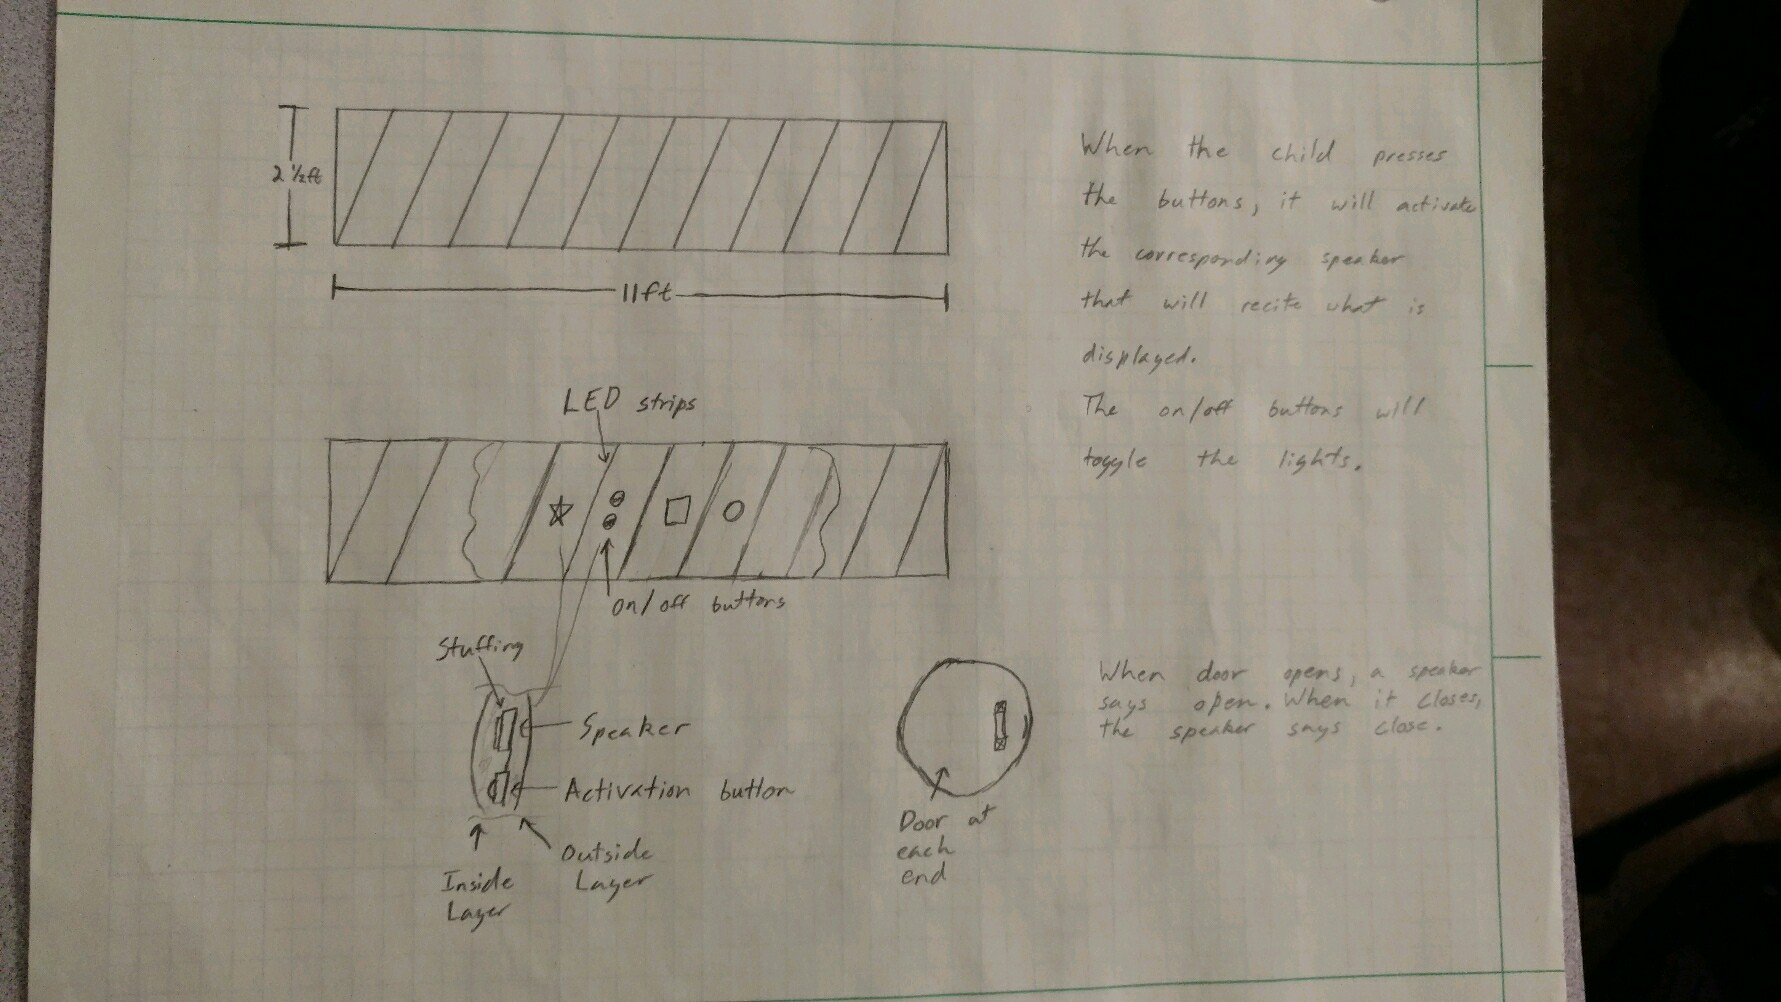 2 ½ft
11ft
When the child presses
the buttons, it will activate
the corresponding speaker
that will recite what is
displayed.
The on/off buttons will
toggle the lights.
LED strips
on/off buttons
Stuffing
Speaker
Activation button
Outside
Layer
Inside
Layer
Door at
each
end
When door opens, a speaker
says open. When it closes,
the speaker says close.